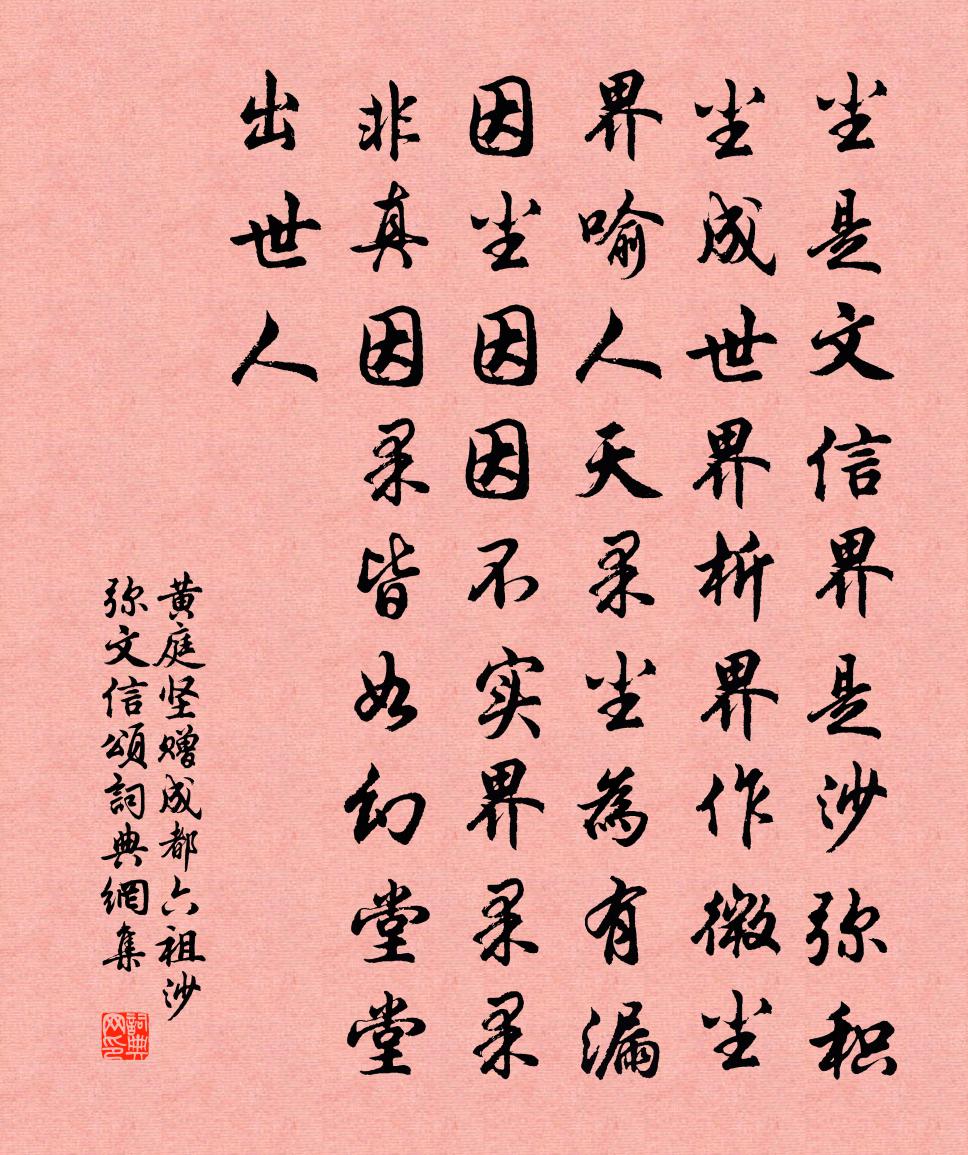 尘是文信界是沙弥积
尘成世界析界作微尘
界喻人天果尘為有漏
因尘因因不实界果果
非真因果皆如幻堂堂
出世人
黄庭坚赠成都六祖沙
弥文信頌詞典網集
詞典
网印